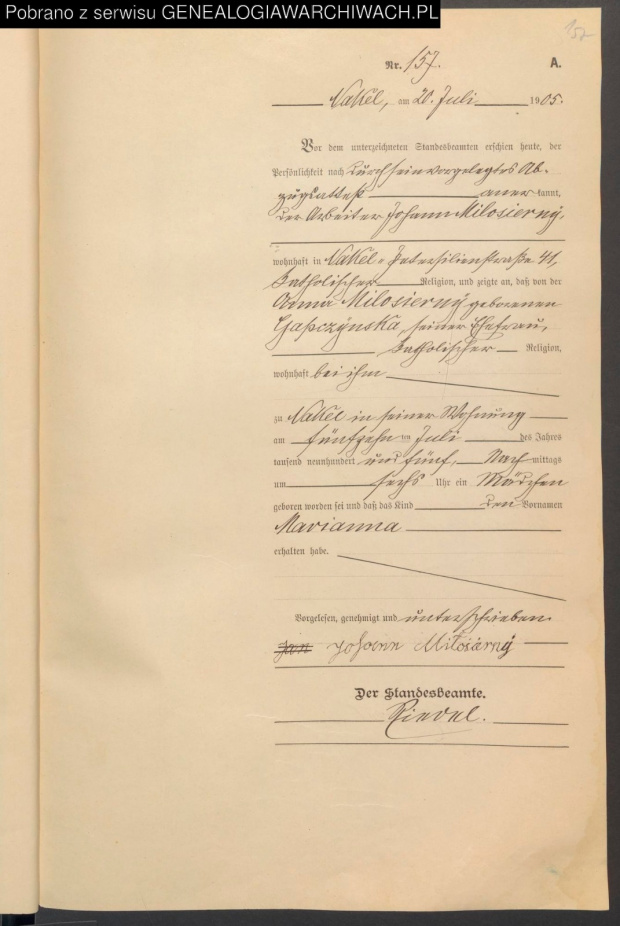 Pobrano z serwisu GENEALOGIAWARCHIWACH.PL
157
Nr. 157. A.
Nakel, am 20. Juli 1905.
Vor dem unterzeichneten Standesbeamten erschien heute, der
Persönlichkeit nach durch sein vorgelegtes Ab-
zugsattest anerkannt,
der Arbeiter Johann Milosierny,
wohnhaft in Nakel, Petersilienstraße 41,
katholischer Religion, und zeigte an, daß von der
Anna Milosierny geborenen
Gapczynska, seiner Ehefrau,
katholischer Religion,
wohnhaft bei ihm
zu Nakel in seiner Wohnung
am fünfzehn ten Juli des Jahres
tausend neunhundert und fünf, Nachmittags
um sechs Uhr ein Mädchen
geboren worden sei und daß das Kind den Vornamen
Marianna
erhalten habe.
Vorgelesen, genehmigt und unterschrieben
Jan Johann Miłosiarny
Der Standesbeamte.
Riedel.